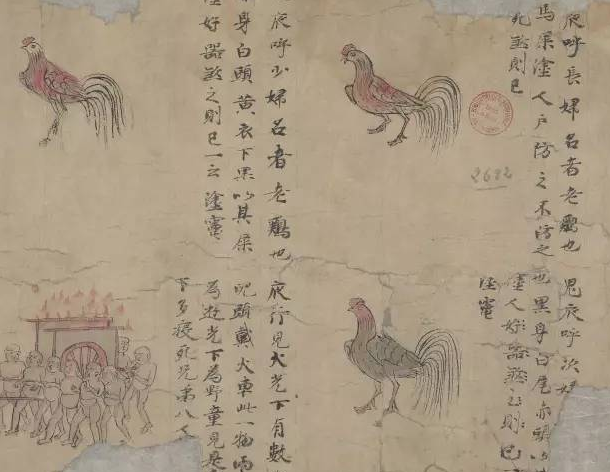 夜呼長婦名者老鷄也
馬屎塗人户防之不防之
死煞則已
夜呼少婦名者老鷄也
身白頭黄衣下黑以其屎
塗好器煞之則已一云塗竈
鬼夜呼次婦
也黑身白尾赤頭以
塗人好器煞之則已
塗竈
夜行見火光下有數
頭戴火車此一物兩
為遊光下為野童見是
下多疫死兄弟八人
2682